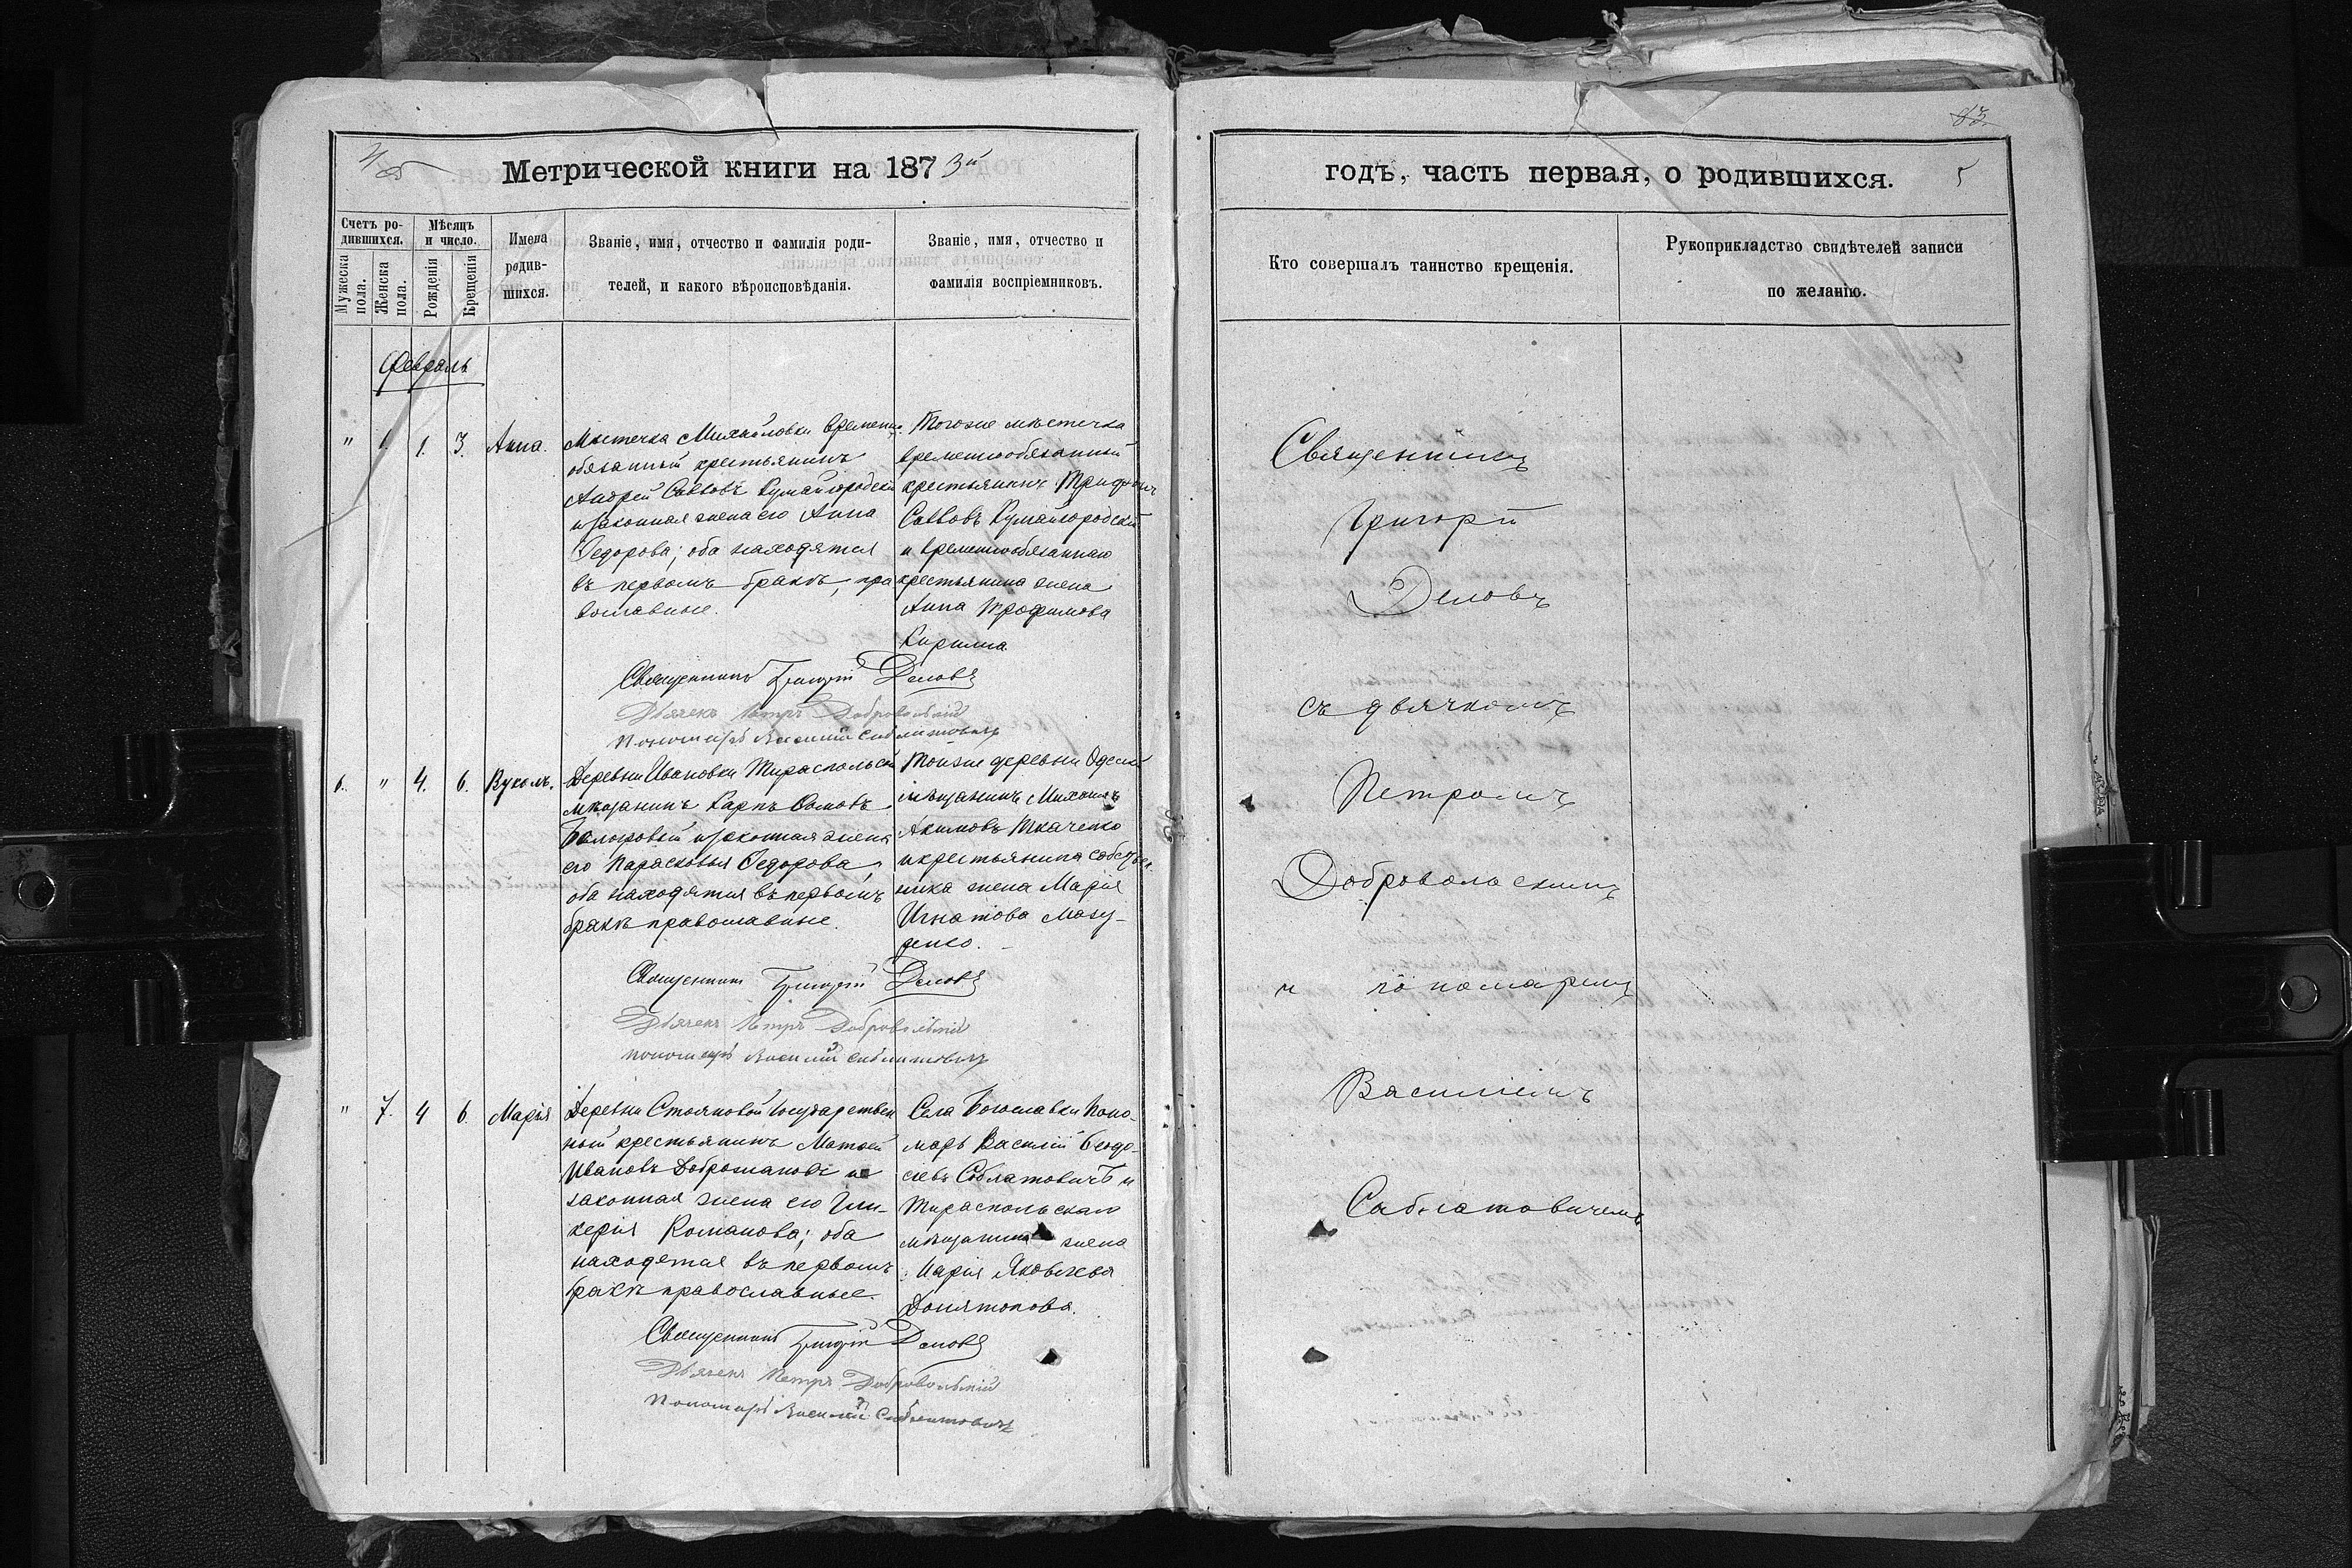 Метрической книги на 1873й
годъ, часть первая, о родившихся. 5
Счетъ ро-
дившихся.
Мужеска пола.
Женска пола.
Мѣсяцъ
и число.
Рожденія
Крещенія
Имена
родив-
шихся.
Званіе, имя, отчество и фамилія роди-
телей, и какого вѣроисповѣданія.
Званіе, имя, отчество и
фамилія воспріемниковъ.
Кто совершалъ таинство крещенія.
Рукоприкладство свидѣтелей записи
по желанію.
Февраль
" 1. 3. Анна.
Мѣстечка Михайловки временно
обязанный крестьянинъ
Андрей Саввовъ Кумайгородскій
и законная жена его Анна
Федорова; оба находятся
въ первомъ бракѣ, пра
вославные.
Тогоже мѣстечка
временнообязанный
крестьянинъ Трифонъ
Саввовъ Кумайгородскій
и временнообязаннаго
крестьянина жена
Анна Трофимова
Священникъ Григорій Деловъ
Дьячекъ Петръ Добровольскій
Пономарь Василій Саблатовичъ
6. " 4. 6. Вуколъ.
Деревни Ивановки Тираспольскій
мѣщанинъ Карпъ
и законная жена
его Парасковья Федорова,
оба находятся въ первомъ
бракѣ православные.
Тойже деревни Одескій
мѣщанинъ Михаилъ
Акимовъ Ткаченко
и крестьянина собствен
ника жена Марія
Игнатова Мазу-
ренко.
Священникъ Григорій Деловъ
Дьячекъ Петръ Добровольскій
пономарь Василій Саблатовичъ
" 7. 4 6. Марія
Деревни Стояновой Государствен
ный крестьянинъ Матвей
Ивановъ Доброжановъ и
законная жена его Гли-
керія Романова; оба
находятся въ первомъ
бракѣ православные.
Села Богославки Поно-
марь Василій Феодо-
сіевъ Саблатовичъ и
Тираспольскаго
мѣщанина жена
Марія Яковлева
Священникъ Григорій Деловъ
Дьячекъ Петръ Добровольскій
Пономарь Василій Саблатовичъ
Священникъ
Григорій
Деловъ
съ дьячкомъ
Петромъ
Добровольскимъ
и пономаремъ
Василіемъ
Саблатовичемъ